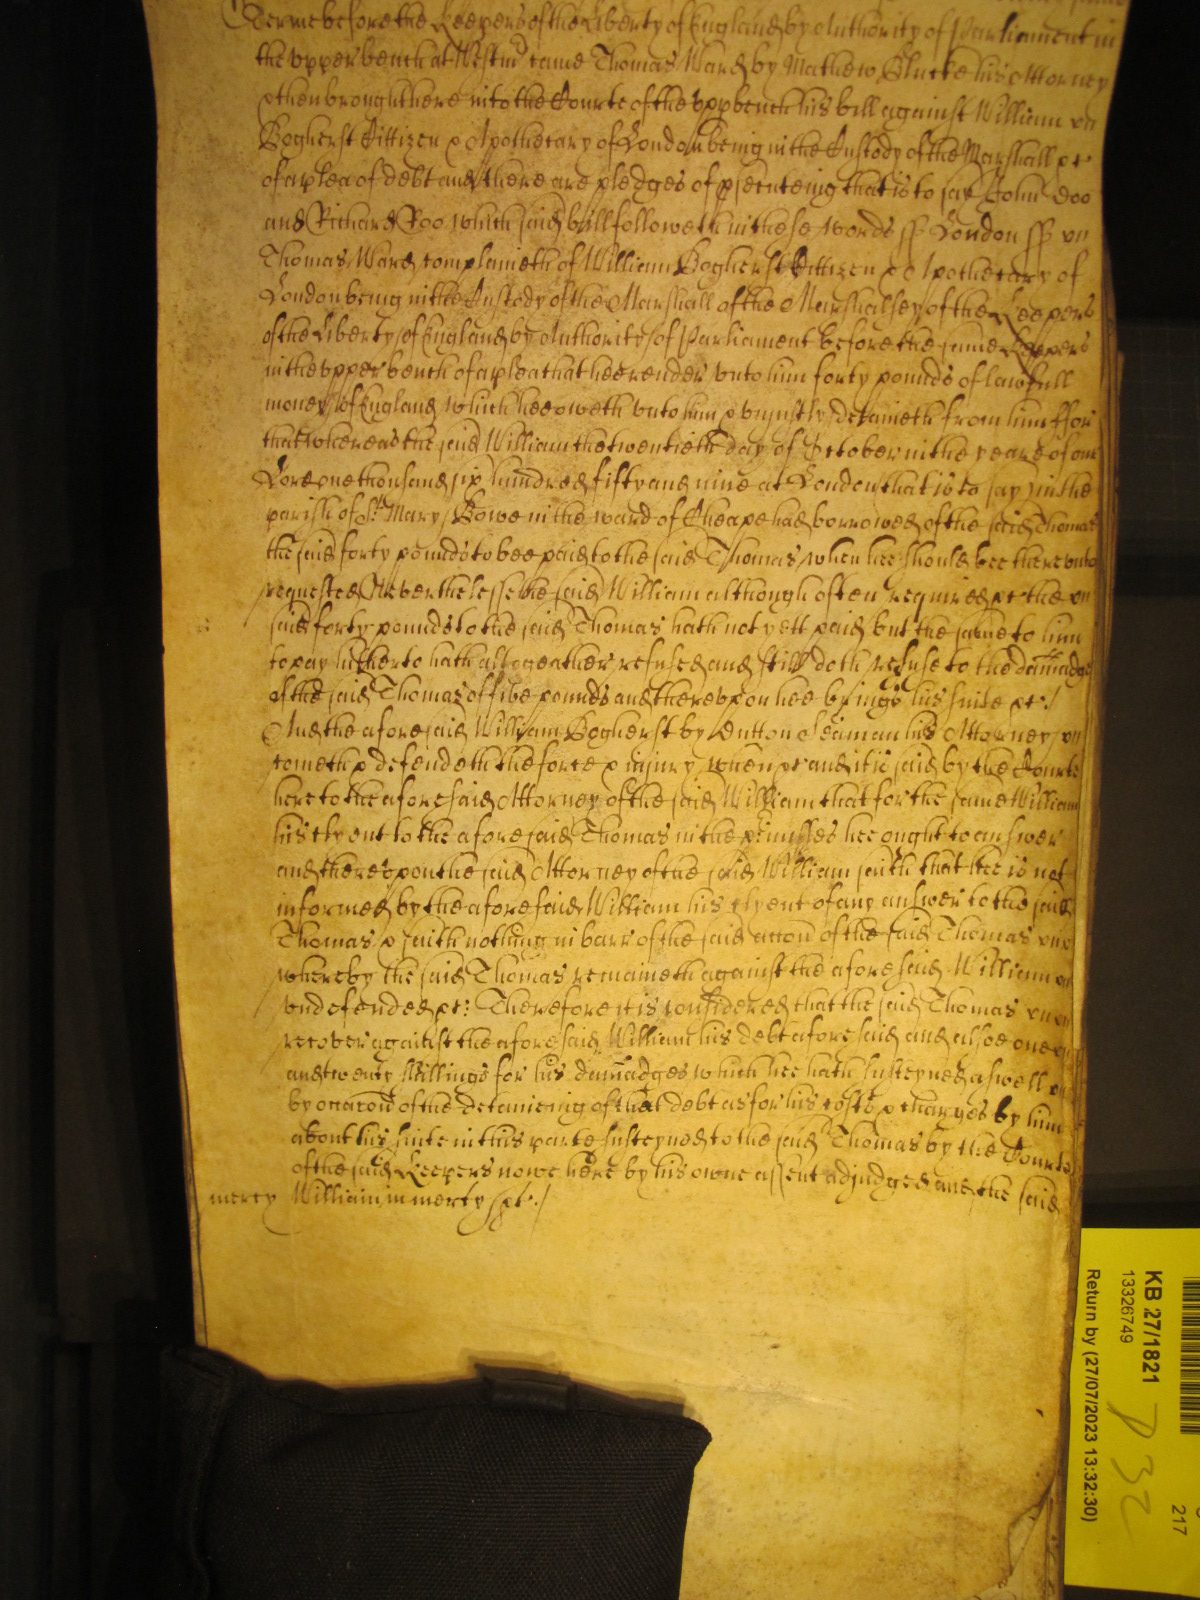 Terme before the Keepers of the Liberty of England by Authority of Parliament in
the upper bench at Westmr came Thomas Ward by Mathew Blucke his Attorney
& then brought here into the Courte of the upp bench his bill against William
Boghurst Cittizen & Apothecary of London being in the Custody of the Marshall &c
of a plea of debt and there are pledges of psecuteing that is to say John Doo
and Richard Roo which said bill followeth in these words ss London ss
Thomas Ward complaineth of William Bogherst Cittizen & Apothecary of
London being in the Custody of the Marshall of the Marshalsey of the Keepers
of the Liberty of England by Authority of Parliament before the same Keepers
in the upper bench of a plea that hee render unto him forty pounds of lawfull
money of England which hee oweth unto him & unjustly detaineth from him ffor
that whereas the said William the twentieth day of October in the yeare of our
Lord one thousand six hundred fifty and nine at London that is to say in the
parish of St Mary Bowe in the ward of Cheape had borrowed of the said Thomas
the said forty pounds to bee paid to the said Thomas when hee should bee thereunto
requested Neverthelesse the said William although often required &c the
said forty pounds to the said Thomas hath not yett paid but the same to him
to pay hitherto hath altogeather refused and still doth refuse to the damadge
of the said Thomas of five pounds and thereupon hee brings his suite &c /
And the aforesaid William Bogherst by Dutton Seaman his Attorney
cometh & defendeth the force & injury when &c and it is said by the Courte
here to the aforesaid Attorney of the said William that for the same William
his clyent to the aforesaid Thomas in the pmisses hee ought to answer
and thereupon the said Attorney of the said William saith that hee is not
informed by the aforesaid William his clyent of any answer to the said
Thomas & saith nothing in barr of the said accon of the said Thomas
whereby the said Thomas remaineth against the aforesaid William
undefended &c: Therefore it is considered that the said Thomas
recover against the aforesaid William his debt aforesaid and alsoe one
and twenty shillings for his damadges which hee hath susteyned aswell
by occacon of the detaineing of that debt as for his costs & charges by him
about his suite in this parte susteyned to the said Thomas by the Courte
of the said Keepers nowe here by his owne assent adjudged and the said
mercy William in mercy &c /
KB 27/1821
13326749
Return by (27/07/2023 13:32:30)
217
P 32